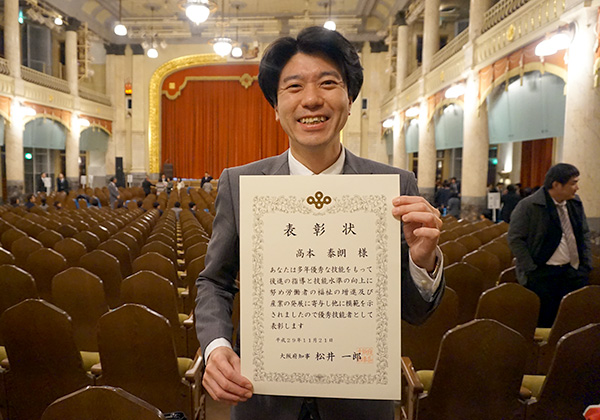 表彰状
高本 泰朗 様
あなたは多年優秀な技能をもって
後進の指導と技能水準の向上に
努め労働者の福祉の増進及び
産業の発展に寄与し他に模範を示
されましたので優秀技能者として
表彰します
平成29年11月21日
大阪府知事 松井 一郎